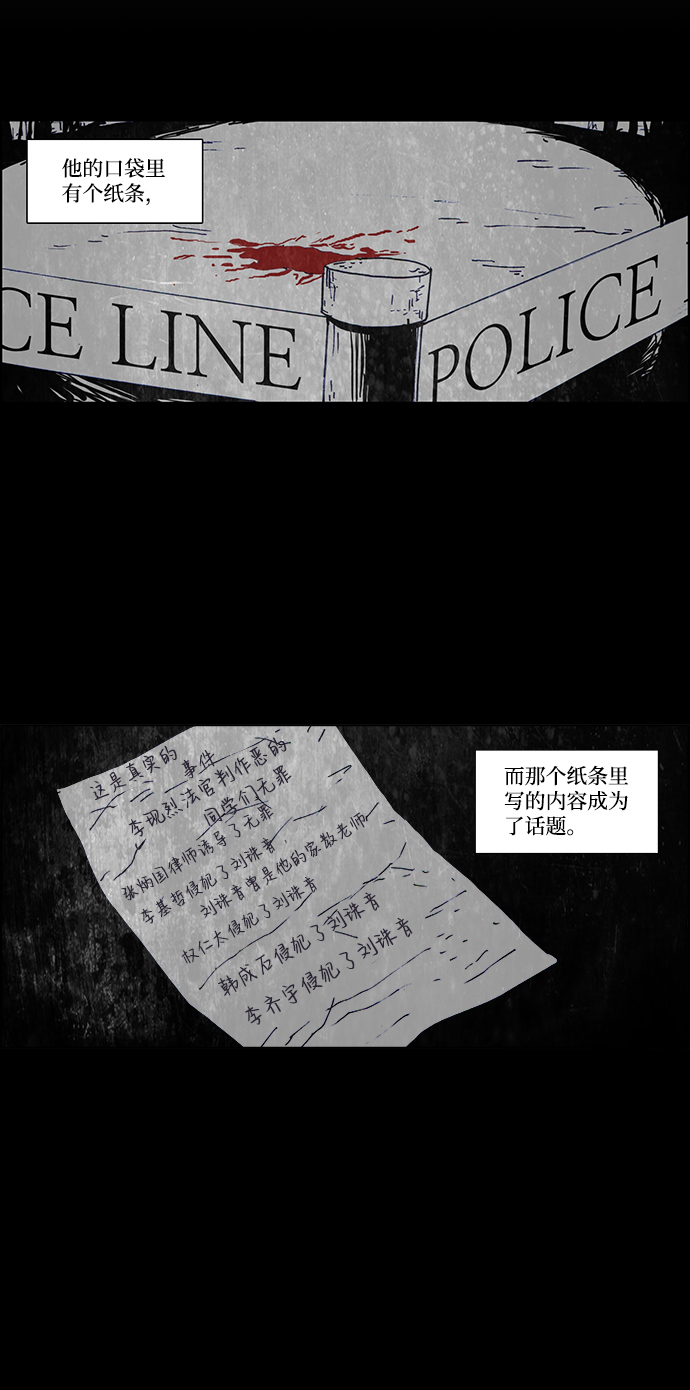 他的口袋里
有个纸条,
CE LINE
POLICE
而那个纸条里
写的内容成为
了话题。
这是真实的 事件
李现烈法官判作恶的
同学们无罪
张炳国律师诱导了无罪
李基哲侵犯了刘诛音,
刘诛音曾是他的家教老师
权仁太侵犯了刘诛音
韩成石侵犯了刘诛音
李齐宇侵犯了刘诛音